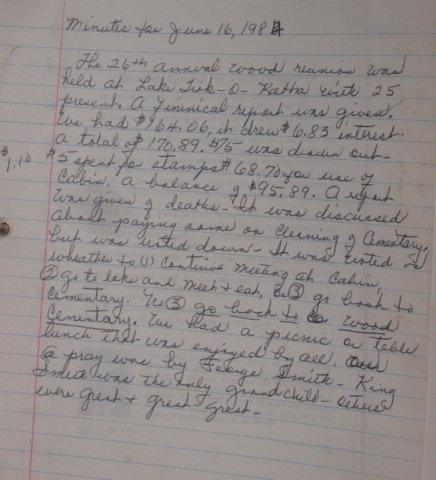 Minutes for June 16, 1984
The 26th annual wood reunion was
held at Lake Tisk-O-Katha with 25
present. A Fininical report was given.
We had $164.06, it drew $6.83 interest.
A total of $170.89. $75 was drawn out-
$1.10
$5 spent for stamps $68.70 for use of
Cabin. A balance of $95.89. A report
was given of deaths - It was discussed
about paying some on cleaning of Cementary,
but was voted down - It was voted on
wheather to (1) Continue meeting at Cabin,
(2) go to lake and meet & eat, & (3) go back to
Cementary. No (3) go back to Wood
Cementary. We had a picnic or table
lunch that was enjoyed by all.
a pray was by George Smith - King
Smith was the only grandchild - others
were great & great-great -